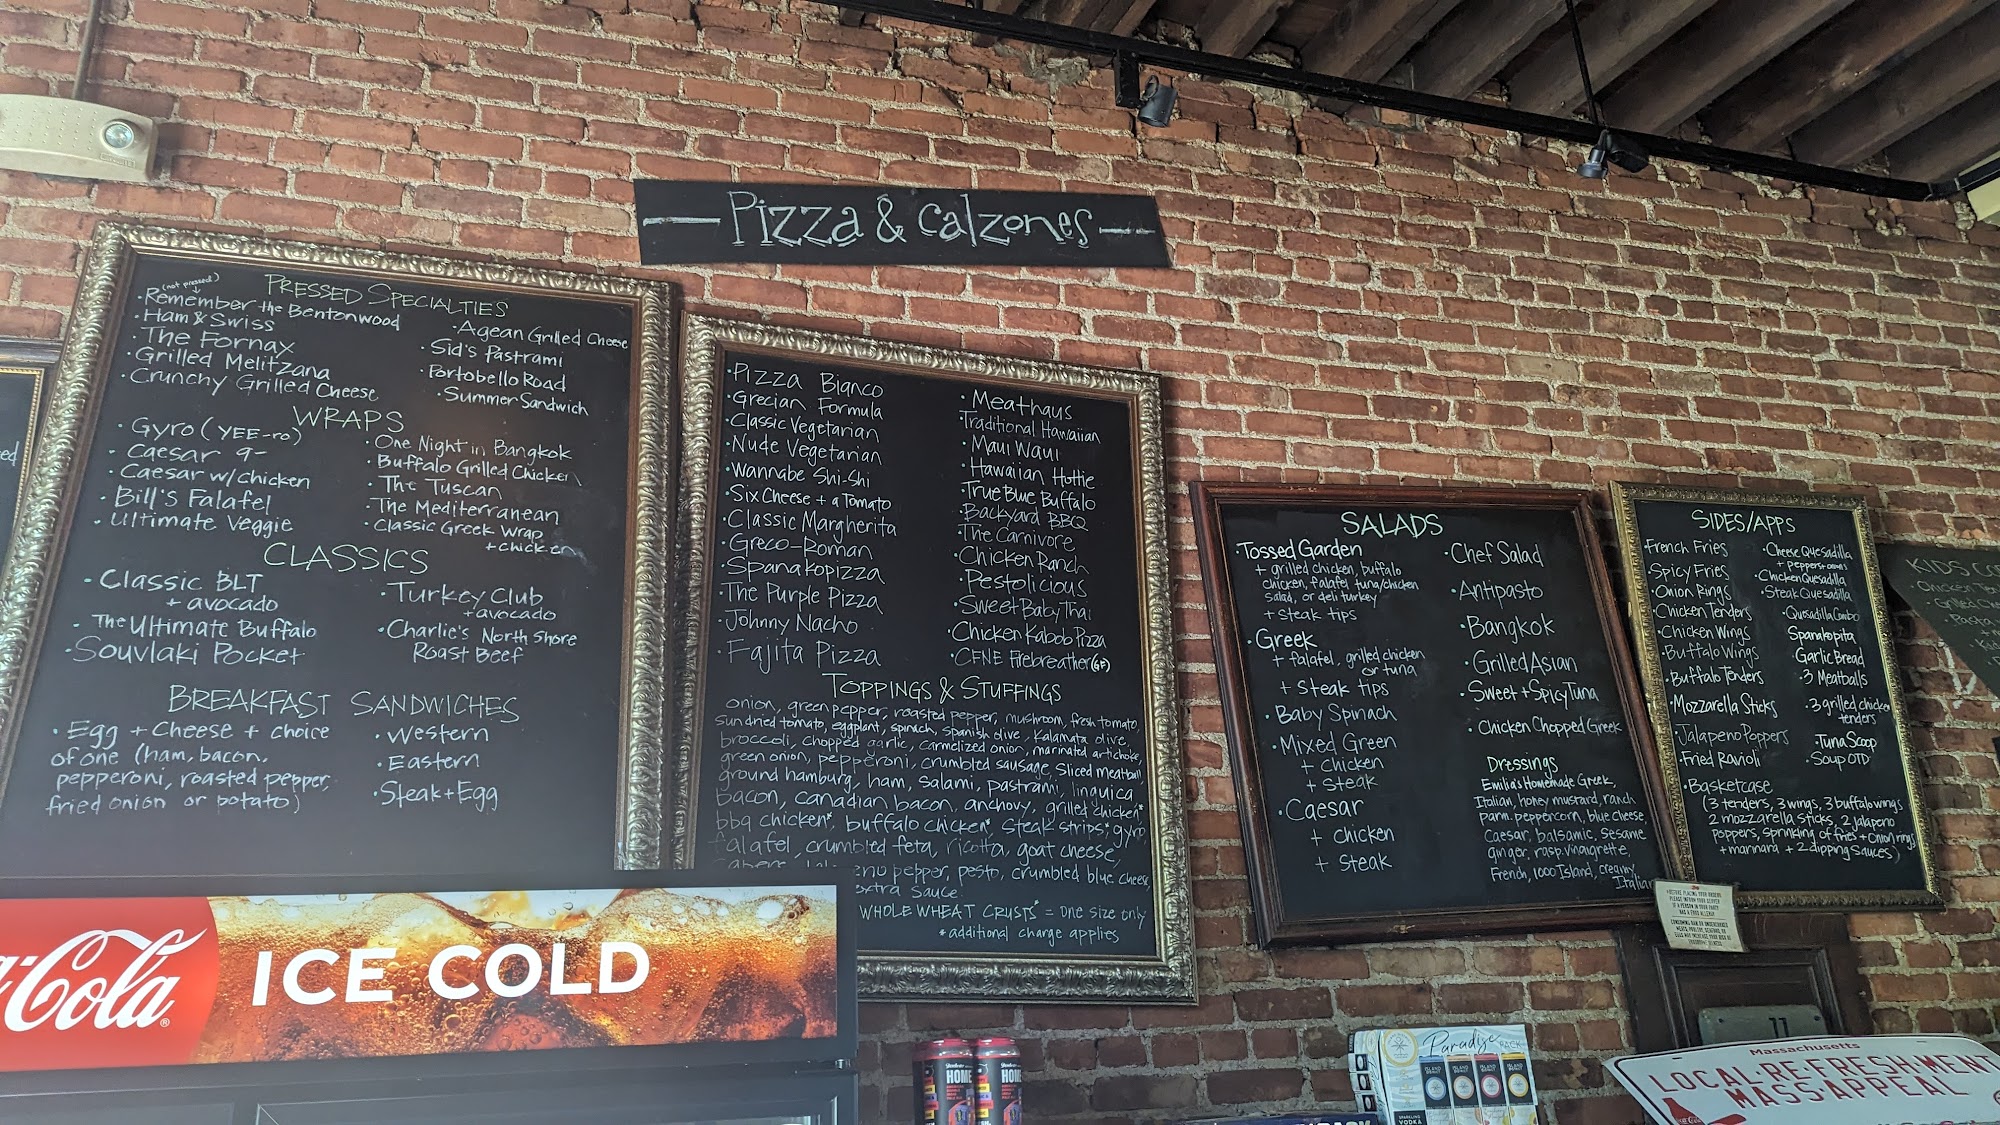 Pizza & Calzones
PRESSED SPECIALTIES
(not pressed)
• Remember the Bentonwood
• Ham & Swiss
• The Fornax
• Grilled Melitzana
• Crunchy Grilled Cheese
• Agean Grilled Cheese
• Sid's Pastrami
• Portobello Road
• Summer Sandwich
WRAPS
• Gyro (YEE-ro)
• Caesar 9-
• Caesar w/chicken
• Bill's Falafel
• Ultimate Veggie
• One Night in Bangkok
• Buffalo Grilled Chicken
• The Tuscan
• The Mediterranean
• Classic Greek Wrap
+ chicken
CLASSICS
• Classic BLT
+ avocado
• The Ultimate Buffalo
• Souvlaki Pocket
• Turkey Club
+ avocado
• Charlie's North Shore
Roast Beef
BREAKFAST SANDWICHES
• Egg + Cheese + choice
of one (ham, bacon,
pepperoni, roasted pepper,
fried onion or potato)
• Western
• Eastern
• Steak + Egg
• Pizza Bianco
• Grecian Formula
• Classic Vegetarian
• Nude Vegetarian
• Wannabe Shi-Shi
• Six Cheese + a Tomato
• Classic Margherita
• Greco-Roman
• Spanakopizza
• The Purple Pizza
• Johnny Nacho
• Fajita Pizza
• Meathaus
• Traditional Hawaiian
• Maui Waui
• Hawaiian Hottie
• True Blue Buffalo
• Backyard BBQ
• The Carnivore
• Chicken Ranch
• Pestolicious
• Sweet Baby Thai
• Chicken Kabob Pizza
• CFNE Firebreather (GF)
TOPPINGS & STUFFINGS
onion, green pepper, roasted pepper, mushroom, fresh tomato,
sundried tomato, eggplant, spinach, spanish olive, kalamata olive,
broccoli, chopped garlic, carmelized onion, marinated artichoke,
green onion, pepperoni, crumbled sausage, sliced meatball
ground hamburg, ham, salami, pastrami, linguica,
bacon, canadian bacon, anchovy, grilled chicken*
bbq chicken*, buffalo chicken*, steak strips*, gyro
falafel, crumbled feta, ricotta, goat cheese,
pepper, pesto, crumbled blue cheese,
extra sauce
WHOLE WHEAT CRUSTS* = one size only
*additional charge applies
SALADS
• Tossed Garden
+ grilled chicken, buffalo
chicken, falafel, tuna/chicken
salad, or deli turkey
+ steak tips
• Greek
+ falafel, grilled chicken
or tuna
+ steak tips
• Baby Spinach
• Mixed Green
+ chicken
+ steak
• Caesar
+ chicken
+ steak
• Chef Salad
• Antipasto
• Bangkok
• Grilled Asian
• Sweet + Spicy Tuna
• Chicken Chopped Greek
Dressings
Emilia's Homemade Greek,
Italian, honey mustard, ranch
parm. peppercorn, blue cheese,
Caesar, balsamic, sesame
ginger, rasp. vinaigrette,
French, 1000 Island, creamy
Italian
SIDES/APPS
• French Fries
• Spicy Fries
• Onion Rings
• Chicken Tenders
• Chicken Wings
• Buffalo Wings
• Buffalo Tenders
• Mozzarella Sticks
• Jalapeno Poppers
• Fried Ravioli
• Basketcase
(3 tenders, 3 wings, 3 buffalo wings
2 mozzarella sticks, 2 jalapeno
poppers, sprinkling of fries + onion rings
+ marinara + 2 dipping sauces)
• Cheese Quesadilla
+ peppers + onions
• Chicken Quesadilla
• Steak Quesadilla
• Quesadilla Combo
Spanakopita
Garlic Bread
• 3 Meatballs
• 3 grilled chicken
tenders
• Tuna Scoop
• Soup OTD
KIDS
• Chicken
• Grilled
• Pasta
BEFORE PLACING YOUR ORDER,
PLEASE INFORM YOUR SERVER
IF A PERSON IN YOUR PARTY
HAS A FOOD ALLERGY.
Coca-Cola
ICE COLD
HOME
HOME
Paradise
PACK
VODKA
11
Massachusetts
LOCAL·RE·FRESH·MENT
MASS·APPEAL